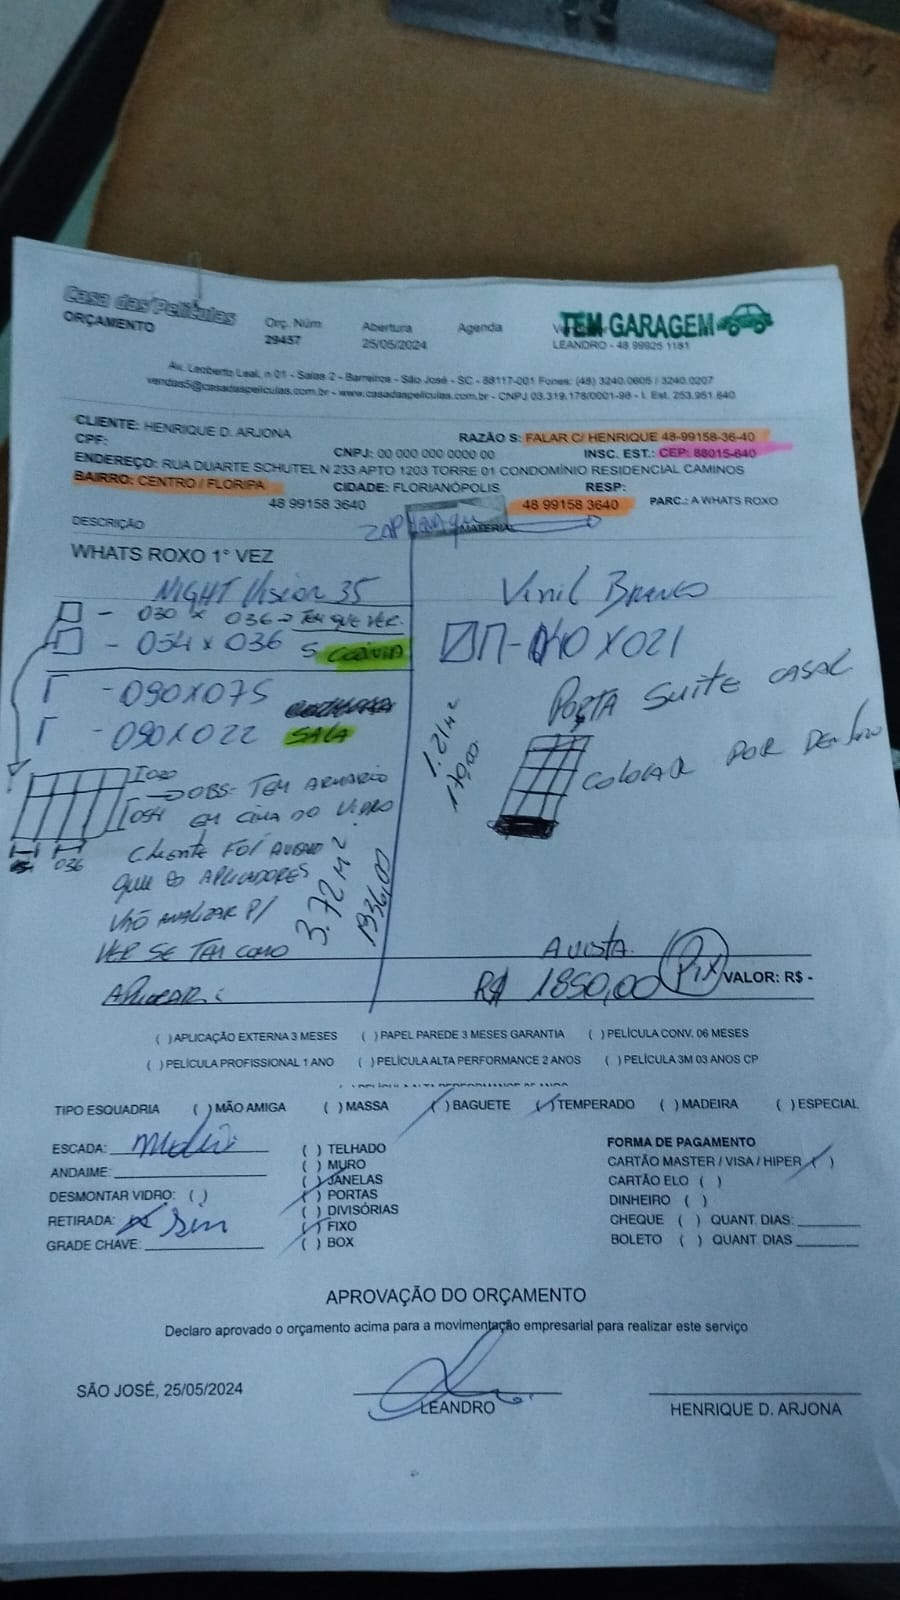 Casa das Películas
ORÇAMENTO
Orç. Núm
29457
Abertura
25/05/2024
Agenda
TEM GARAGEM
LEANDRO - 48 99925 1181
Av. Leoberto Leal, n 01 - Salas 2 - Barreiros - São José - SC - 88117-001 Fones: (48) 3240.0605 / 3240.0207
vendas5@casadaspeliculas.com.br - www.casadaspeliculas.com.br - CNPJ 03.319.178/0001-98 - I. Est. 253.951.640
CLIENTE: HENRIQUE D. ARJONA
RAZÃO S: FALAR C/ HENRIQUE 48-99158-36-40
CPF:
CNPJ: 00 000 000 0000 00
INSC. EST.: CEP: 88015-640
ENDEREÇO: RUA DUARTE SCHUTEL N 233 APTO 1203 TORRE 01 CONDOMÍNIO RESIDENCIAL CAMINOS
BAIRRO: CENTRO / FLORIPA
CIDADE: FLORIANÓPOLIS
RESP:
48 99158 3640
48 99158 3640
PARC.: A WHATS ROXO
DESCRIÇÃO
MATERIAL
WHATS ROXO 1° VEZ
NIGHT Vision 35
- 030 x 036 → TEM QUE VER.
- 054 x 036
- 090X075
- 090X022
SALA
I020
I054
036
→ OBS- TEM ARMARIO
EM CIMA DO VIDRO
CLIENTE FOI
QUE OS APLICADORES
VÃO ANALIZAR P/
VER SE TEM COMO
APLICAR.
3.72 M²
1936,00
Vinil BRANCO
040X021
PORTA SUITE CASAL
COLOCAR POR DENTRO
1.21 M²
AVISTA.
R$ 1850,00 PIX
VALOR: R$ -
( ) APLICAÇÃO EXTERNA 3 MESES ( ) PAPEL PAREDE 3 MESES GARANTIA ( ) PELÍCULA CONV. 06 MESES
( ) PELÍCULA PROFISSIONAL 1 ANO ( ) PELÍCULA ALTA PERFORMANCE 2 ANOS ( ) PELÍCULA 3M 03 ANOS CP
TIPO ESQUADRIA ( ) MÃO AMIGA ( ) MASSA ( ) BAGUETE ( ) TEMPERADO ( ) MADEIRA ( ) ESPECIAL
ESCADA:
ANDAIME:
DESMONTAR VIDRO: ( )
RETIRADA: x Sim
GRADE CHAVE:
( ) TELHADO
( ) MURO
( ) JANELAS
( ) PORTAS
( ) DIVISÓRIAS
( ) FIXO
( ) BOX
FORMA DE PAGAMENTO
CARTÃO MASTER / VISA / HIPER ( )
CARTÃO ELO ( )
DINHEIRO ( )
CHEQUE ( ) QUANT. DIAS:
BOLETO ( ) QUANT. DIAS
APROVAÇÃO DO ORÇAMENTO
Declaro aprovado o orçamento acima para a movimentação empresarial para realizar este serviço
SÃO JOSÉ, 25/05/2024
LEANDRO
HENRIQUE D. ARJONA